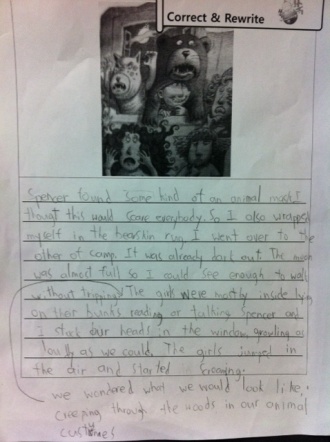 Correct & Rewrite
Spencer found some kind of an animal mask I
thougt this would scare everybody. So I also wrapped
myself in the bearskin rug I went over to the
other of camp. It was already dark out. The moon
was almost full so I could see enough to walk
without tripping! The girls were mostly inside lying
on their bunks reading or talking Spencer and
I stuck our heads in the window, growling as
loudly as we could. The girls jumped in
the air and started screaming.
we wondered what we would look like,
creeping through the woods in our animal
customes